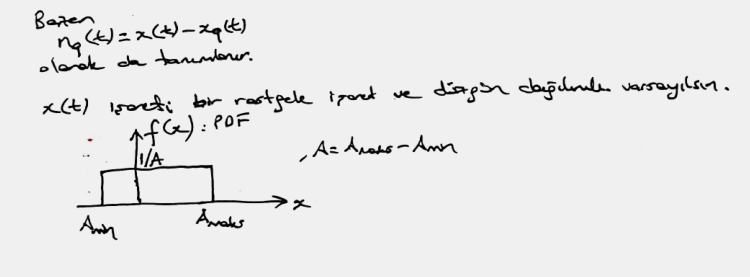 Bazen
nq(t) = x(t) - xq(t)
olarak da tanımlanır.
x(t) işareti bir rastgele işaret ve düzgün dağılımlı varsayılsın.
f(x) : PDF
1/A
, A = Amaks - Amin
x
Amin
Amaks